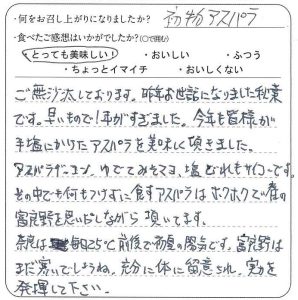 ・何をお召し上がりになりましたか? 初物アスパラ
・食べたご感想はいかがでしたか?(○で囲む)
とっても美味しい! ・おいしい ・ふつう
・ちょっとイマイチ ・おいしくない
ご無沙汰しております。昨年お世話になりました
です。早いもので1年がすぎました。今年も皆様が
手塩にかけたアスパラを美味しく頂きました。
アスパラベーコン、ゆでてみそマヨ、塩どれもサイコーです。
その中でも何もつけずに食すアスパラはホクホクで春の
富良野を思いだしながら頂いてます。
奈良は 毎日25℃前後で初夏の陽気です。富良野は
まだ寒いでしょうね。充分に体に留意され、実力を
発揮して下さい。